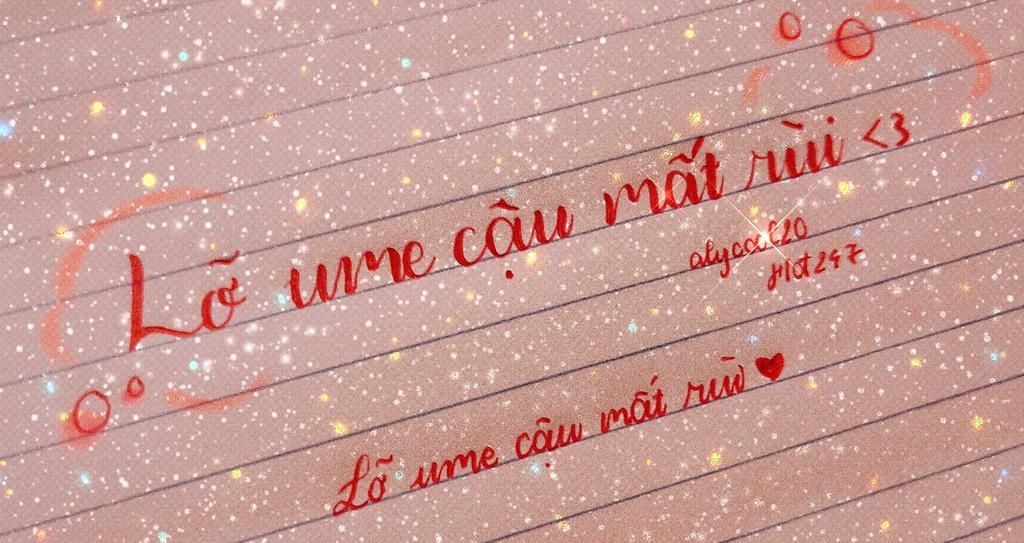 Lỡ ume cậu mất rùi <3
Hot247
Lỡ ume cậu mất rùi ♥